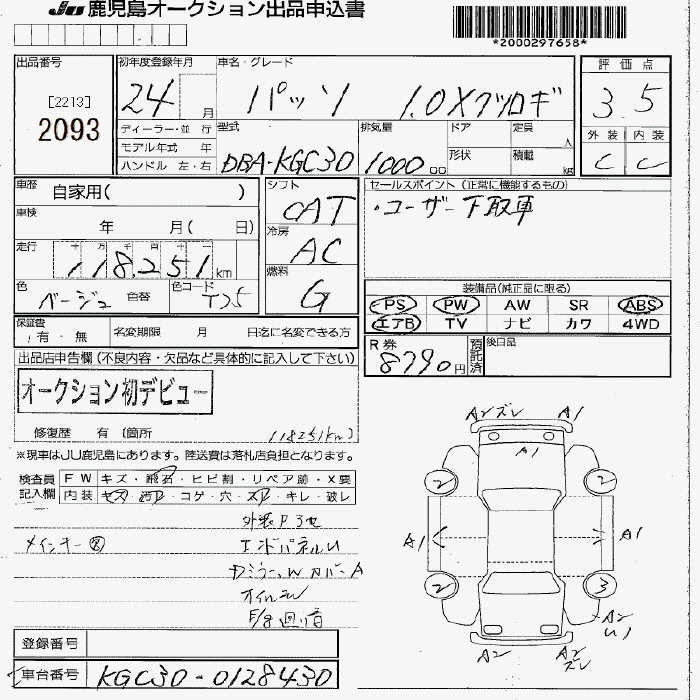 JU 鹿児島オークション出品申込書
*2000297658*
出品番号
[2213]
2093
初年度登録年月
24 月
車名・グレード
パッソ 1.0Xクツロギ
評価点
3.5
外装 内装
C C
ディーラー・並行
モデル年式 年
ハンドル 左・右
型式
DBA-KGC30
排気量
1000 cc
ドア 定員 人
形状 積載 kg
車歴
自家用( )
車検
年 月( 日)
走行
十 万 千 百 十 一
118,251 km
色
ベージュ 色替
色コード
T25
シフト
CAT
冷房
AC
燃料
G
セールスポイント (正常に機能するもの)
・ユーザー下取車
装備品(純正品に限る)
PS PW AW SR ABS
エアB TV ナビ カワ 4WD
保証書
有・無
名変期限 月 日迄に名変できる方
R券
8790円
預託済
後日品
出品店申告欄(不良内容・欠品など具体的に記入して下さい)
オークション初デビュー
修復歴 有 〔箇所
118251km
※現車はJU鹿児島にあります。陸送費は落札店負担となります。
検査員記入欄
FW キズ・飛石・ヒビ割・リペア跡・X要
内装 キズ・汚れ・コゲ・穴・スレ・キレ・破レ
外装P3セ
メインキー エンドパネルU
DミラーWカバーA
F/g廻り音
A2ズレ A1
A1
2 2
A1 A1
2 3
A2 U1
A2 A2ズレ
登録番号
車台番号 KGC30-0128430